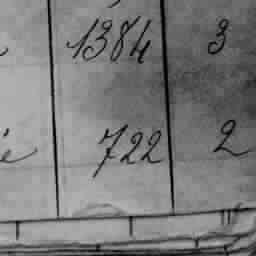 1384 3
722 2